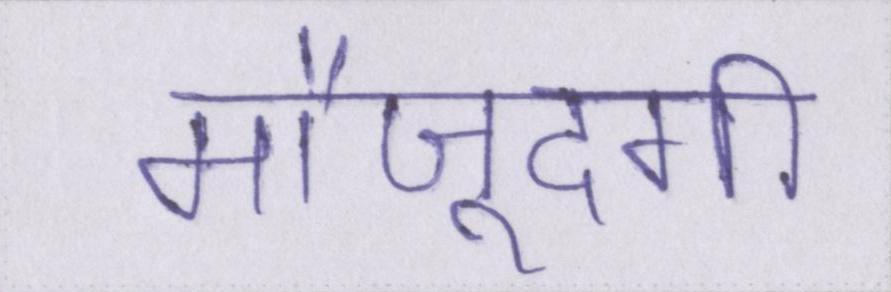 मौजूदगी